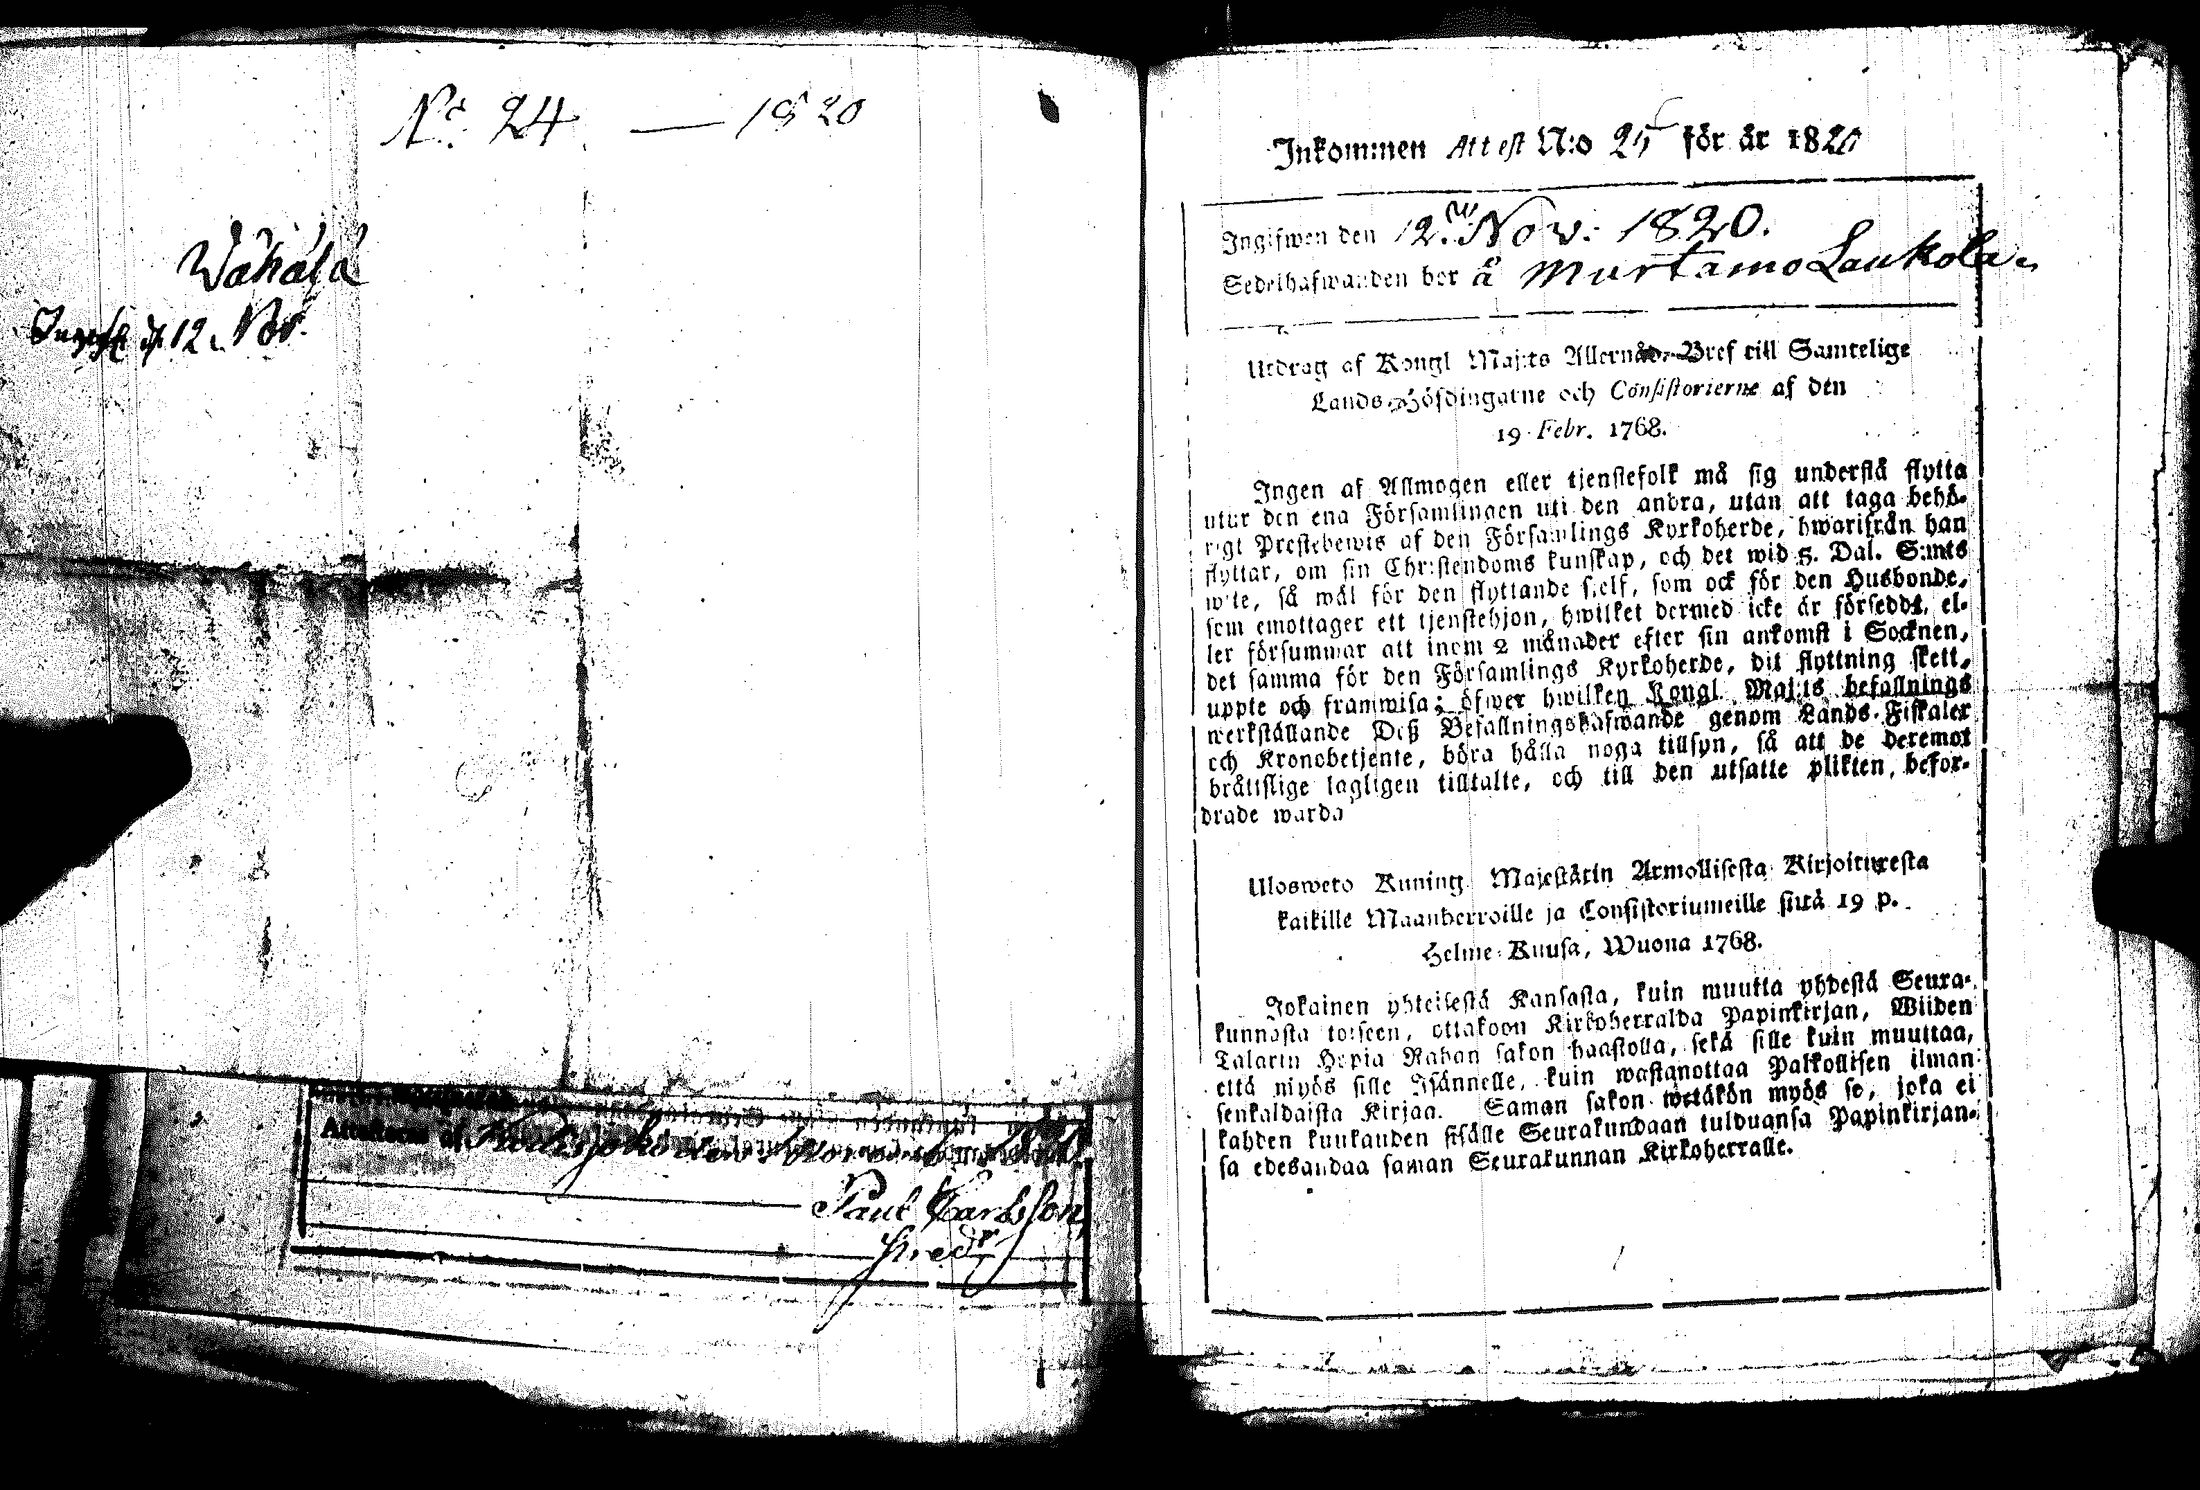 No. 24 — 1820
Wähälä
d. 12. Nov.
Attesteras af
Paul Carlsson
Inkommen Attest N:o 25 för år 1820
Ingifwen den 12. Nov: 1820.
Sedelhafwanden bor å Murtamo Laukola.
Utdrag af Kongl Maj:ts Allernåd. Bref till Samtelige
Lands-Höfdingarne och Consistorierne af den
19 Febr. 1768.
Ingen af Allmogen eller tjenstefolk må sig understå flytta
utur den ena Församlingen uti den andra, utan att taga behö-
rigt Prestebewis af den Församlings Kyrkoherde, hwarifrån han
flyttar, om sin Christendoms kunskap, och det wid 5. Dal. S:mts
wite, så wäl för den flyttande sjelf, som ock för den Husbonde,
som emottager ett tjenstehjon, hwilket dermed icke är förseddt, el-
ler försummar att inom 2 månader efter sin ankomst i Socknen,
det samma för den Församlings Kyrkoherde, dit flyttning skett,
uppte och framwisa; öfwer hwilken Kongl. Maj:ts befallnings
werkställande Deß Befallningshafwande genom Lands-Fiskaler
och Kronobetjente, böra hålla noga tillsyn, så att de deremot
bråttslige lagligen tilltalte, och till den utsatte plikten, befor-
drade warda
Ulosweto Kuning. Majestätin Armollisesta Kirjoituxesta
kaikille Maanherroille ja Consistoriumeille siitä 19 p.
Helme-Kuusa, Wuona 1768.
Jokainen yhteisestä Kansasta, kuin muutta yhdestä Seura-
kunnasta toiseen, ottakoon Kirkoherralda Papinkirjan, Wiiden
Talarin Hopia Rahan sakon haastolla, sekä sille kuin muuttaa,
että myös sille Isännelle, kuin wastanottaa Palkollisen ilman
senkaldaista Kirjaa. Saman sakon wetäkön myös se, joka ei
kahden kuukauden sisälle Seurakundaan tulduansa Papinkirjan-
sa edesandaa saman Seurakunnan Kirkoherralle.